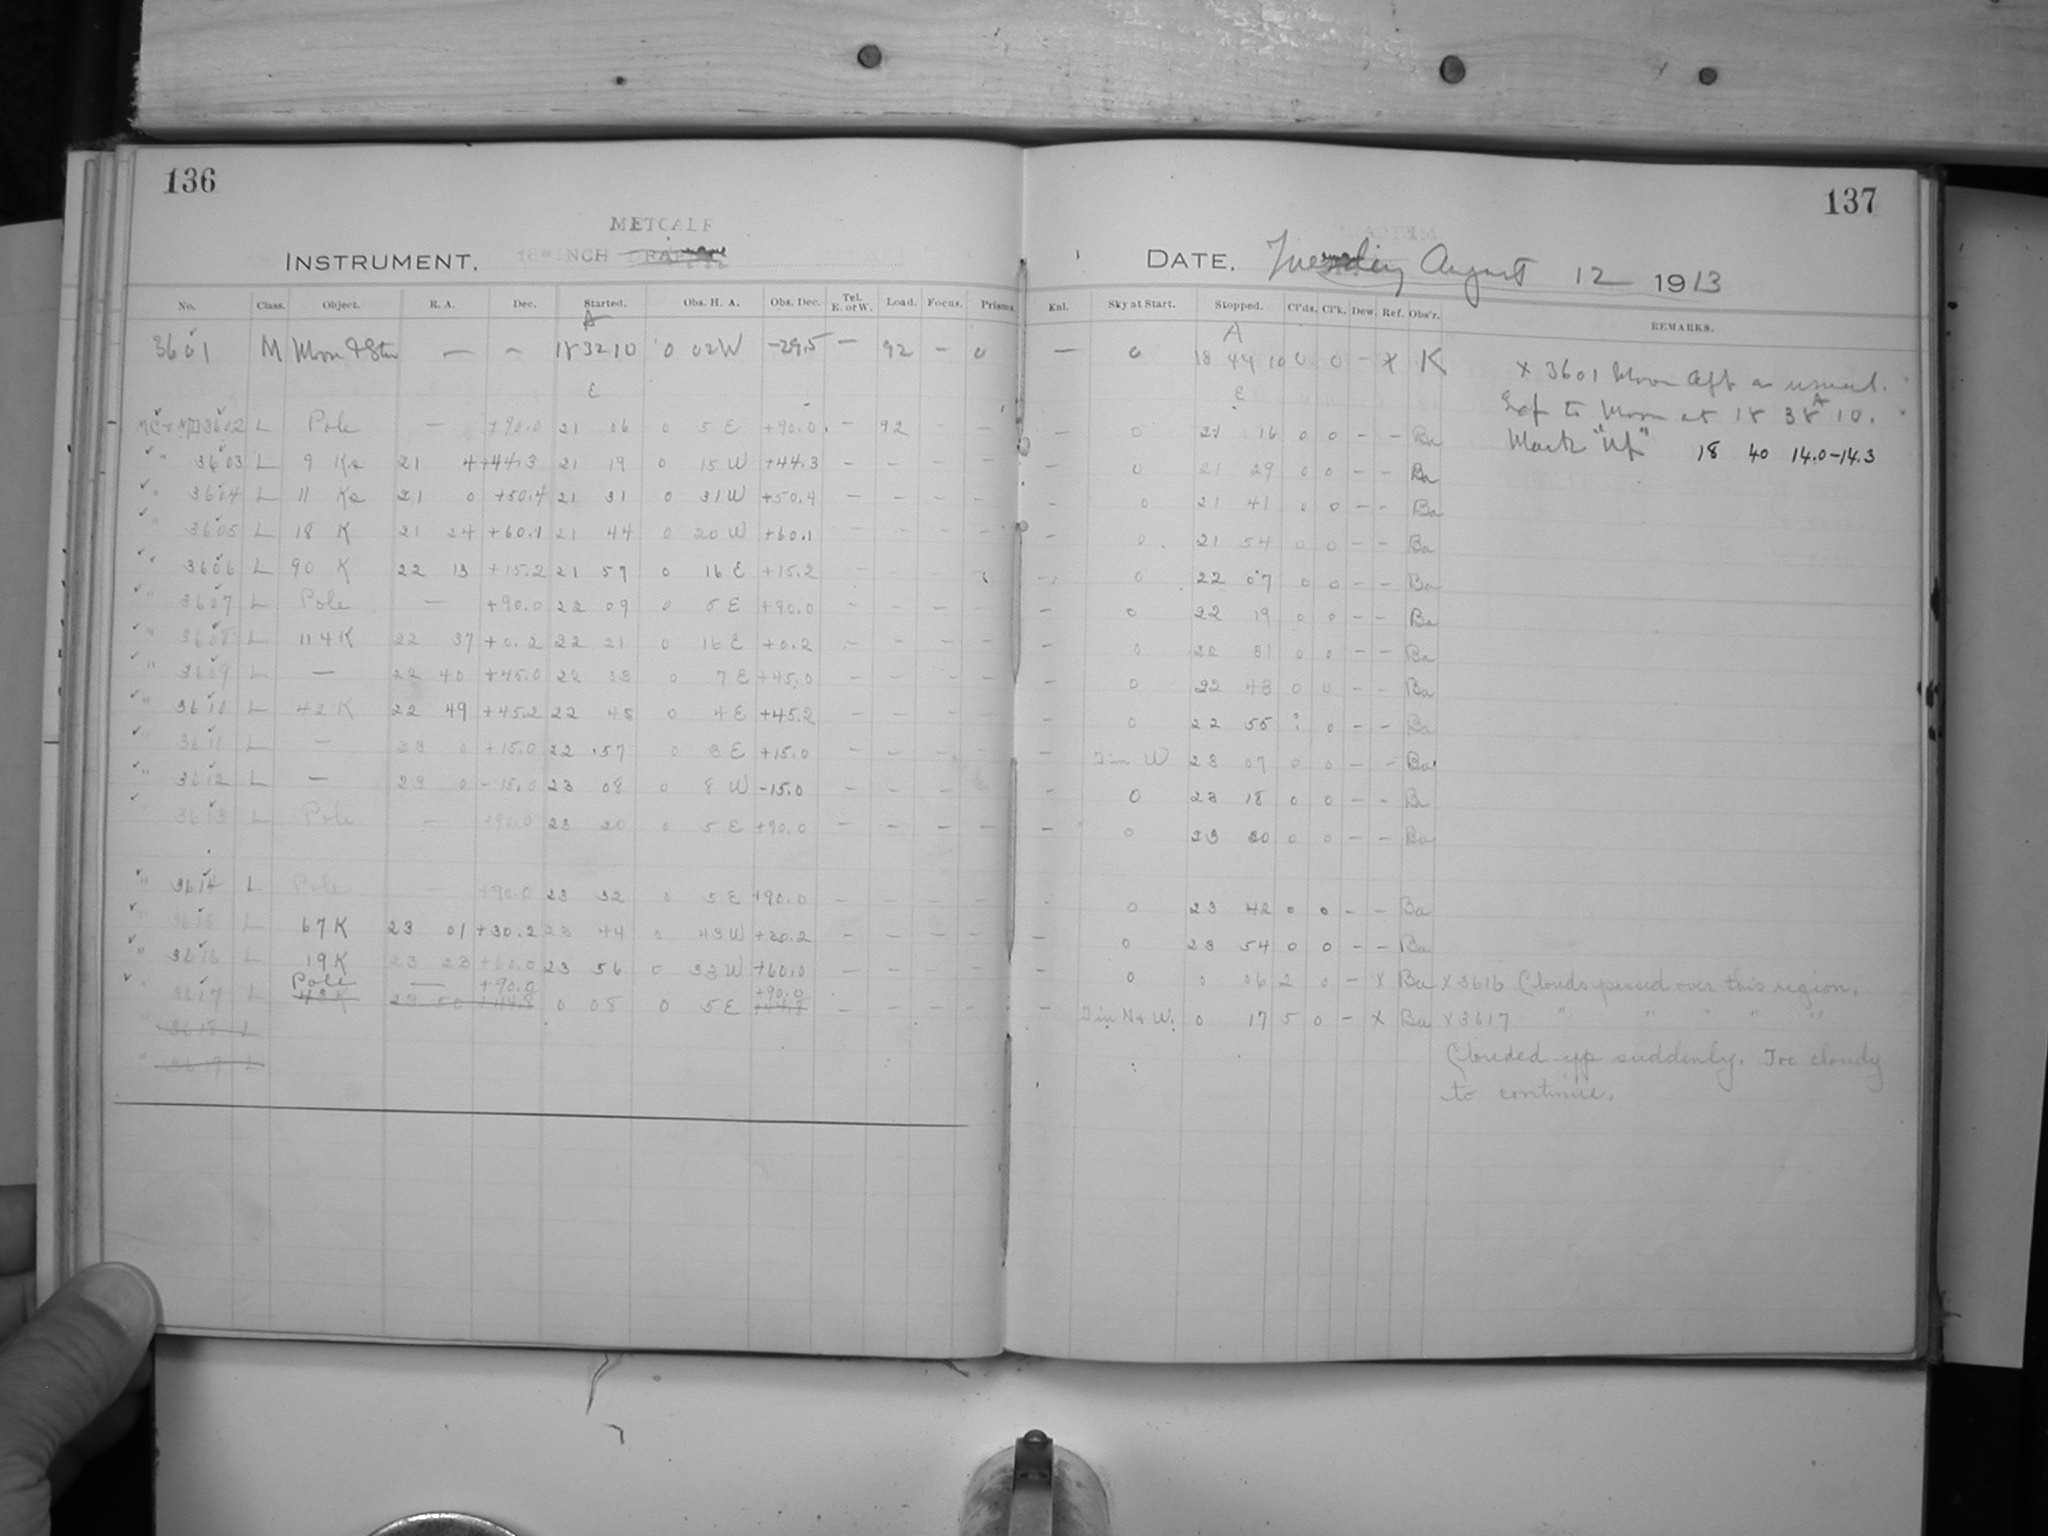 136
METCALF
INSTRUMENT. 16 INCH
No. Class. Object. R. A. Dec. Started. Obs. H. A. Obs. Dec. Tel. E. or W. Load. Focus. Prisms.
A
3601 M Moon & Stars — — 18 32 10 0 02 W -29.5 — 92 — 0
E
MC & MD 3602 L Pole — +90.0 21 06 0 5 E +90.0 — 92 — —
" 3603 L 9 Ka 21 4 +44.3 21 19 0 15 W +44.3 — — — —
" 3604 L 11 Ka 21 0 +50.4 21 31 0 31 W +50.4 — — — —
" 3605 L 18 K 21 24 +60.1 21 44 0 20 W +60.1 — — — —
" 3606 L 90 K 22 13 +15.2 21 57 0 16 E +15.2 — — — —
" 3607 L Pole — +90.0 22 09 0 5 E +90.0 — — — —
" 3608 L 114 K 22 37 +0.2 22 21 0 16 E +0.2 — — — —
" 3609 L — 22 40 +45.0 22 33 0 7 E +45.0 — — — —
" 3610 L 42 K 22 49 +45.2 22 45 0 4 E +45.2 — — — —
" 3611 L — 23 0 +15.0 22 57 0 3 E +15.0 — — — —
" 3612 L — 23 0 -15.0 23 08 0 8 W -15.0 — — — —
" 3613 L Pole — +90.0 23 20 0 5 E +90.0 — — — —
" 3614 L Pole — +90.0 23 32 0 5 E +90.0 — — — —
" 3615 L 67 K 23 01 +30.2 23 44 0 43 W +30.2 — — — —
" 3616 L 19 K 23 23 +60.0 23 56 0 33 W +60.0 — — — —
Pole — +90.0 +90.0
" 3617 L 43 K 23 50 +44.8 0 08 0 5 E +44.8 — — — —
" 3618 L
" 3619 L
137
DATE. Tuesday August 12 1913
Enl. Sky at Start. Stopped. Cl'ds. Cl'k. Dew. Ref. Obs'r. REMARKS.
A
— 0 18 44 10 0 0 — x K
x 3601 Moon Aff as usual.
Set to Moon at 18 38 A 10.
E
— 0 21 16 0 0 — — Ba
Mark "Nf" 18 40 14.0-14.3
— 0 21 29 0 0 — — Ba
— 0 21 41 0 0 — — Ba
— 0 21 54 0 0 — — Ba
— 0 22 07 0 0 — — Ba
— 0 22 19 0 0 — — Ba
— 0 22 31 0 0 — — Ba
— 0 22 43 0 0 — — Ba
— 0 22 55 ? 0 — — Ba
— 1 in W 23 07 0 0 — — Ba
— 0 23 18 0 0 — — Ba
— 0 23 30 0 0 — — Ba
0 23 42 0 0 — — Ba
— 0 23 54 0 0 — — Ba
0 0 06 2 0 — x Ba x 3616 Clouds passed over this region.
— 1 in N & W. 0 17 5 0 — x Ba x 3617 " " " " "
Clouded up suddenly. Too cloudy
to continue.